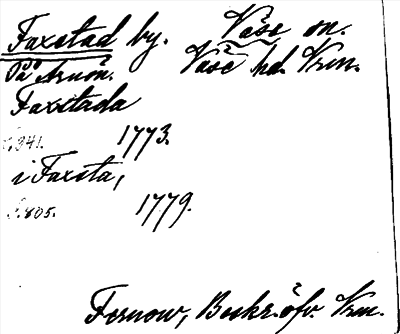 Faxstad by. Väse sn.
På Arnön. Väse hd. Vrm.
Faxstada
S.341. 1773.
i Faxsta,
S.805. 1779.
Fernow, Beskr. öfv. Vrm.